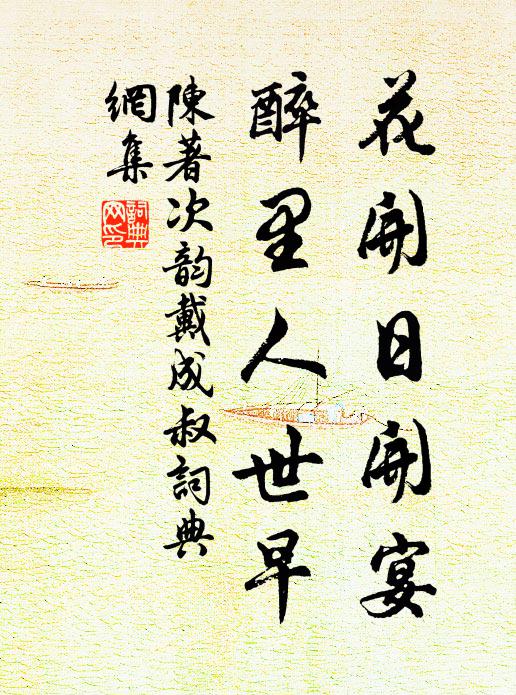 花開日開宴
醉里人世早
陳著次韵戴成叔詞典
網集
詞典
网印